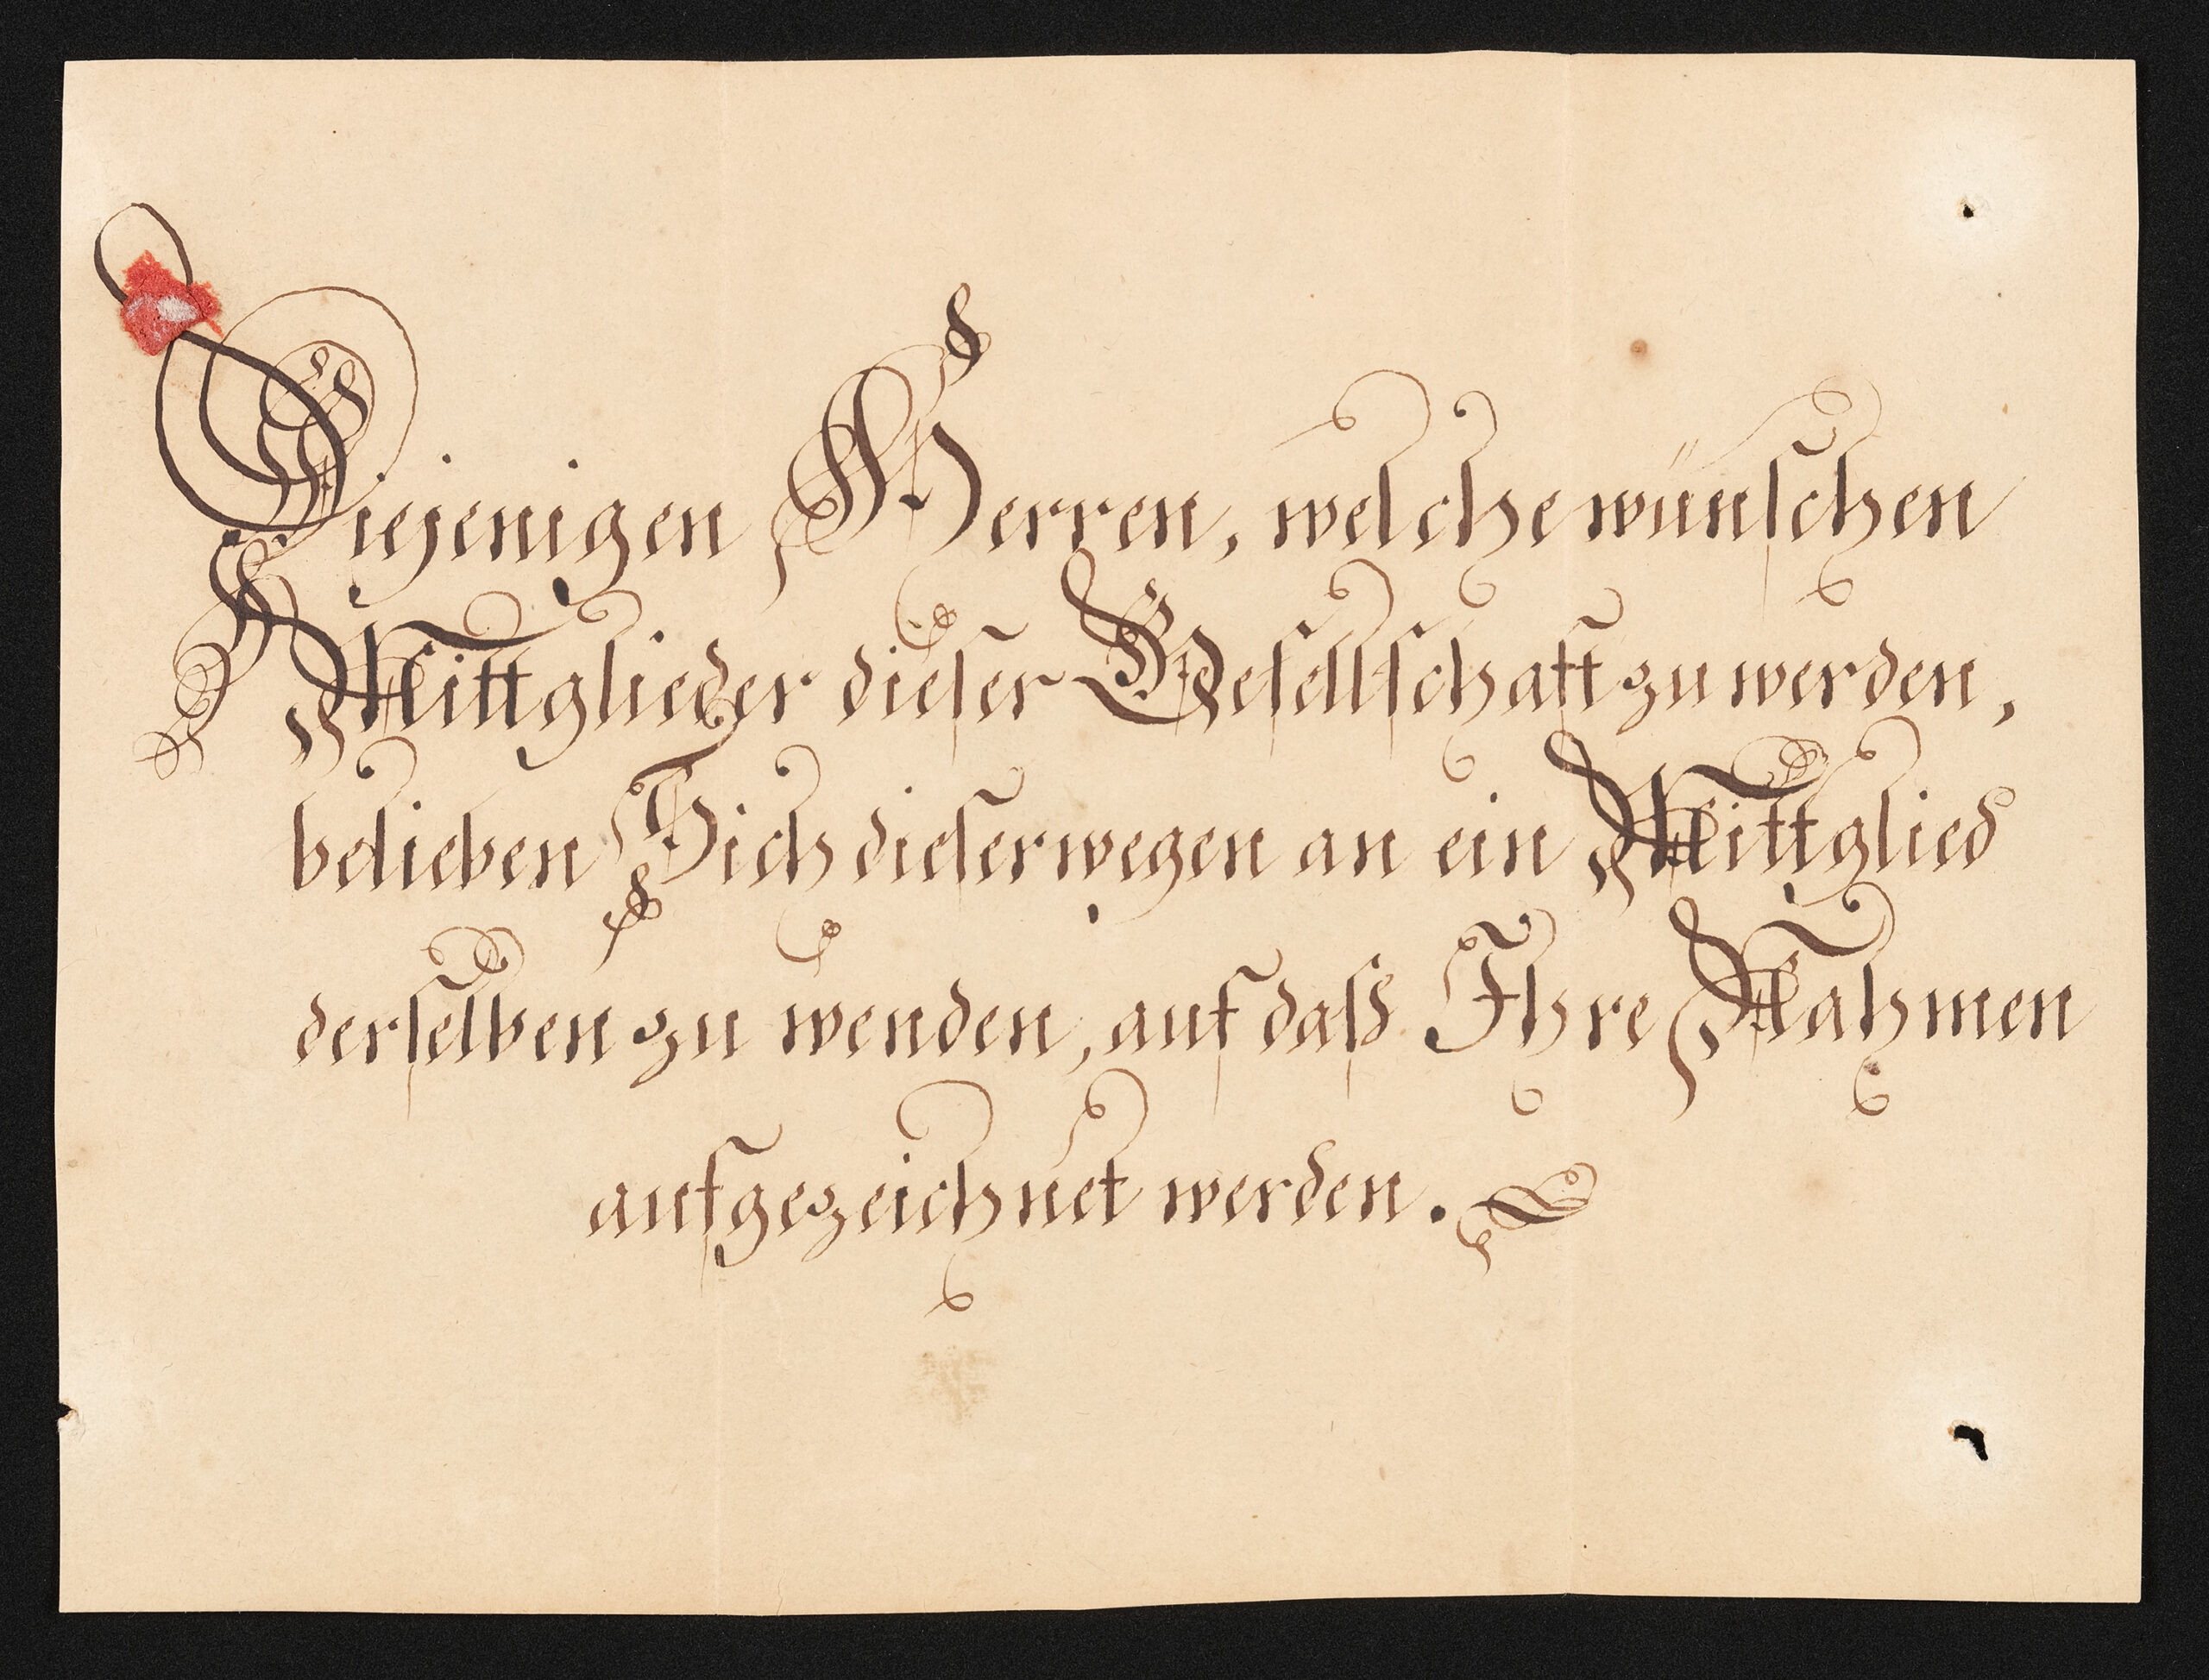 Diejenigen Herren, welche wünschen
Mittglieder dieser Gesellschaft zu werden,
belieben Sich dieserwegen an ein Mittglied
derselben zu wenden, auf daß Ihre Nahmen
aufgezeichnet werden.